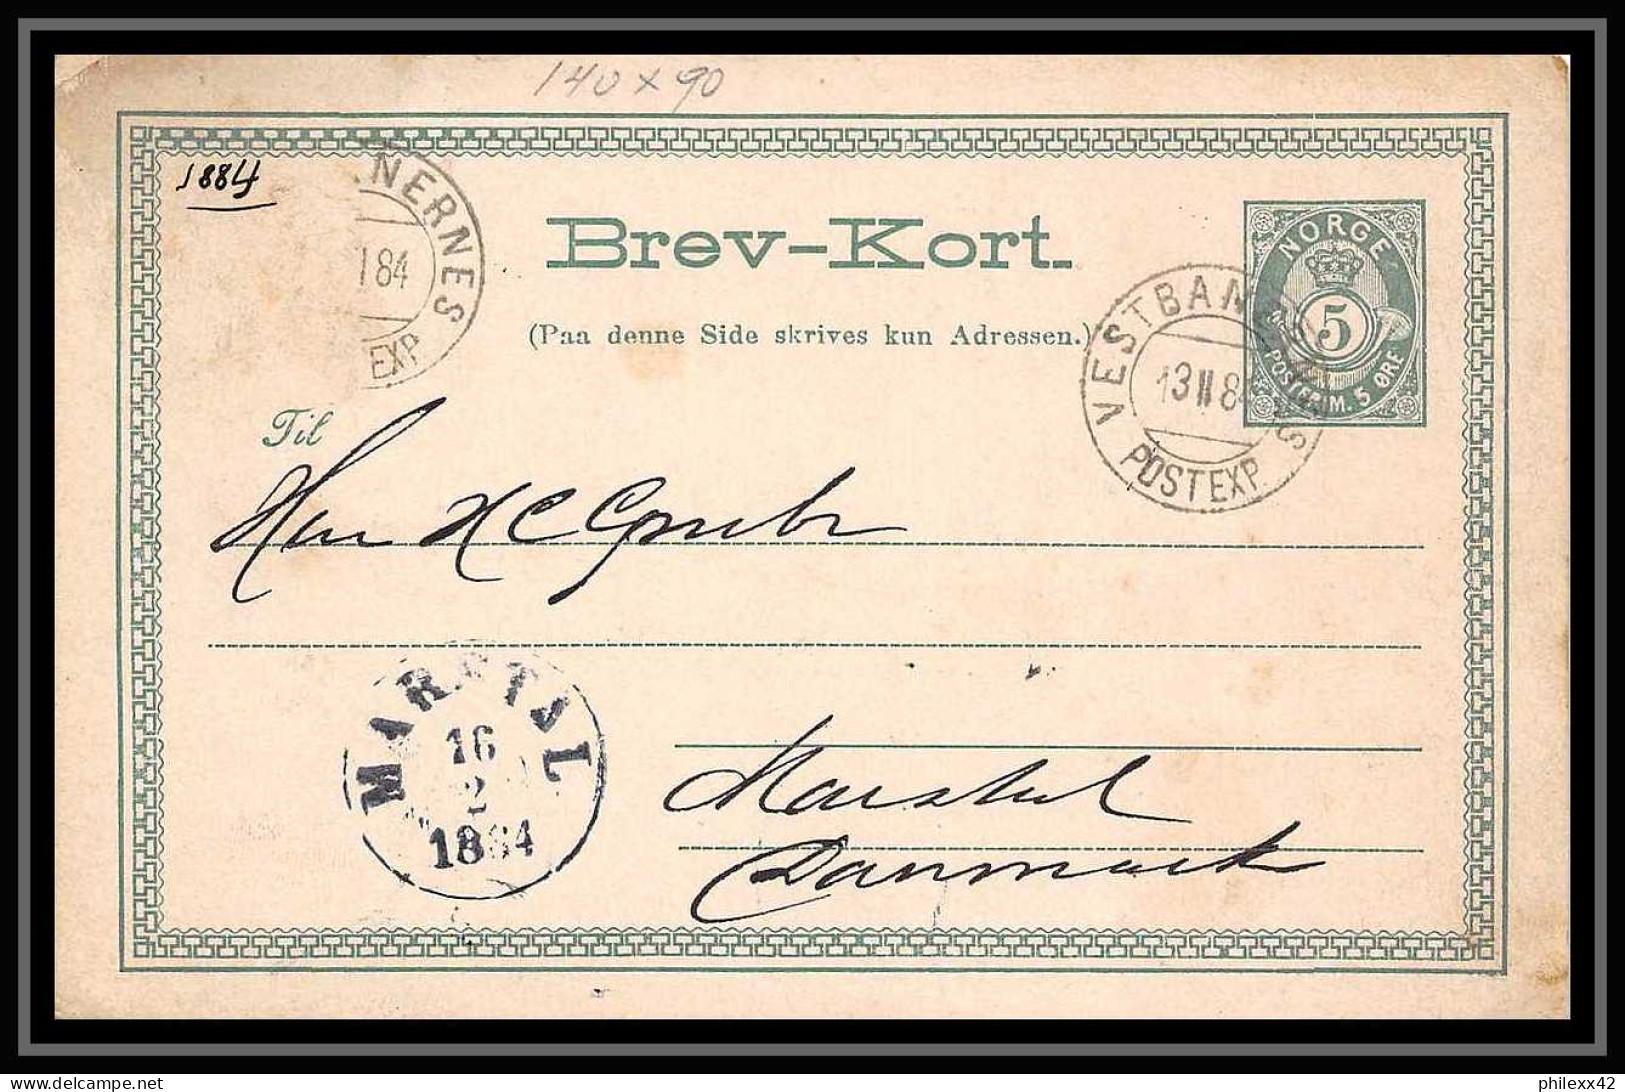 140 x 90
1884
NERNES
184
EXP.
Brev-Kort.
(Paa denne Side skrives kun Adressen.)
NORGE
5
POSTFRIM. 5 ØRE
VESTBAN
13 II 8
POSTEXP.
Til
Herr H C Grube
MARSTAL
16
2
1884
Marstal
Danmark
philexx42